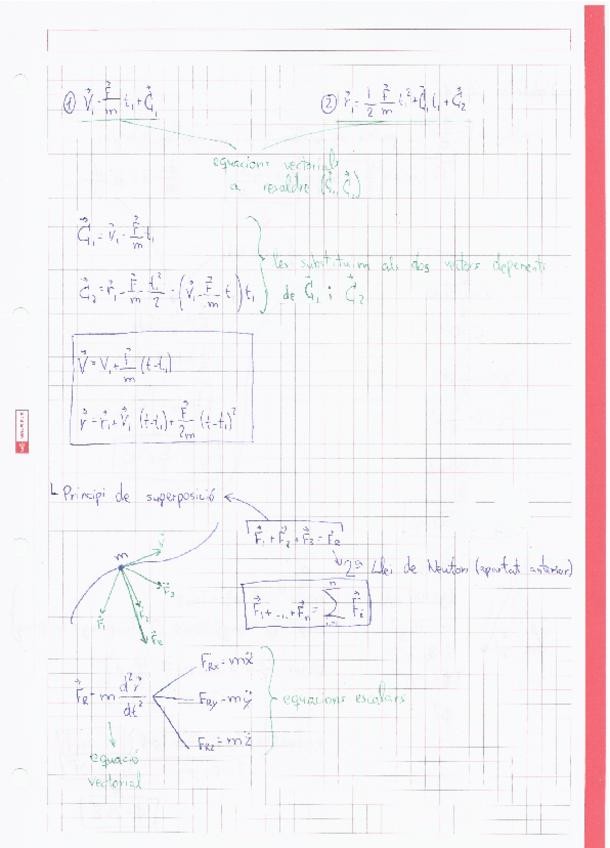 ① V⃗₁ = F⃗/m t₁ + C⃗₁
② r⃗₁ = 1/2 F⃗/m t₁² + C⃗₁ t₁ + C⃗₂
equacions vectorials
a resoldre (C⃗₁, C⃗₂)
C⃗₁ = v⃗₁ - F⃗/m t₁
C⃗₂ = r⃗₁ - F⃗/m t₁²/2 - (v⃗₁ - F⃗/m t) t₁
les substituïm als dos vectors depenents
de C⃗₁ i C⃗₂
V⃗ = V₁ + F⃗/m (t-t₁)
r⃗ = r⃗₁ + V⃗₁ (t-t₁) + F⃗/2m (t-t₁)²
Principi de superposició
F⃗₁ + F⃗₂ + F⃗₃ = F⃗R
2ª Llei de Newton (apartat anterior)
F⃗₁ + ... + F⃗n = Σ F⃗i
m
v⃗
F⃗₃
F⃗₂
F⃗₁
F⃗R
F⃗R = m d²r⃗/dt²
FRx = mẍ
FRy = mÿ
FRz = mz̈
equacions escalars
equació
vectorial